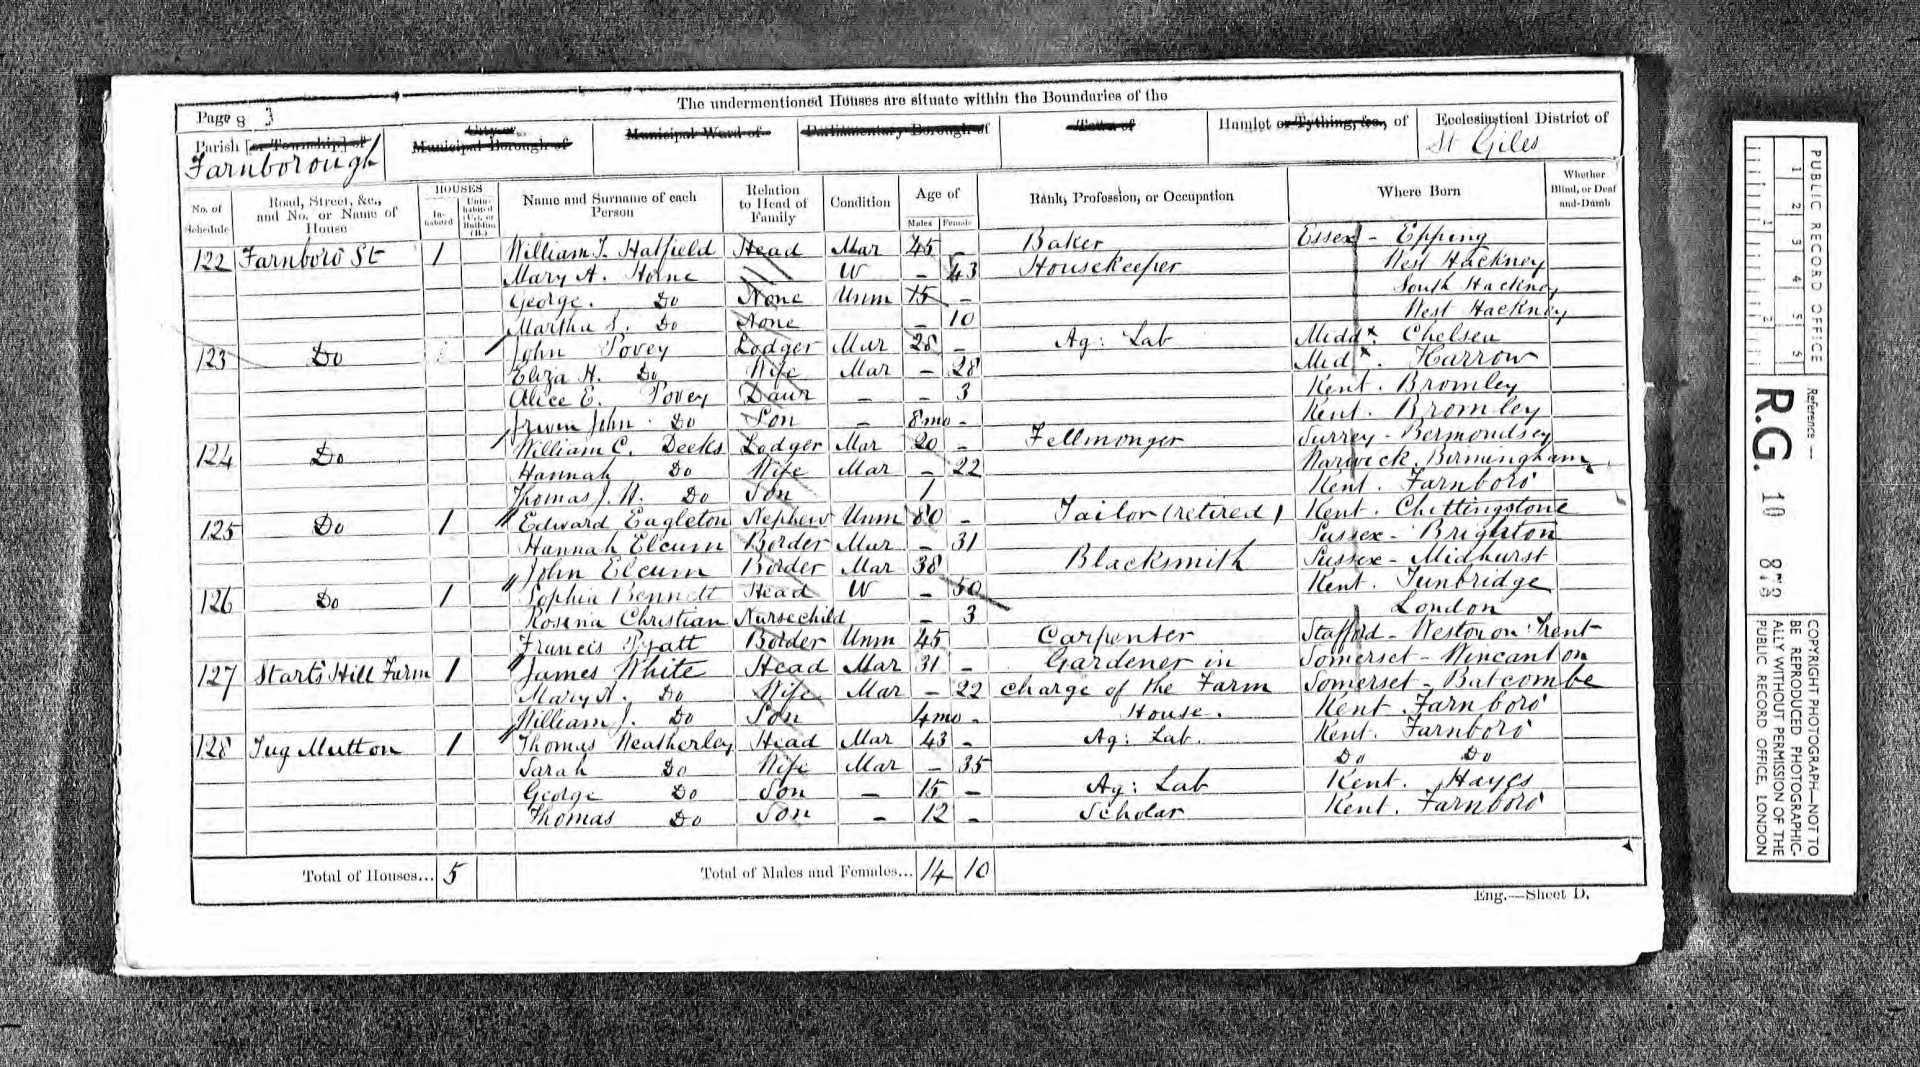 The undermentioned Houses are situate within the Boundaries of the
Page 8 3
Parish [or Township] of Farnborough
City or Municipal Borough of
Municipal Ward of
Parliamentary Borough of
Town of
Hamlet or Tything, &c., of
Ecclesiastical District of St Giles
No. of Schedule
Road, Street, &c., and No. or Name of House
HOUSES
In-habited
Unin-habited (U.), or Building (B.)
Name and Surname of each Person
Relation to Head of Family
Condition
Age of
Males Females
Rank, Profession, or Occupation
Where Born
Whether Blind, or Deaf-and-Dumb
122 Farnboro St 1 William T. Hatfield Head Mar 45 - Baker Essex - Epping
Mary A. Horne W - 43 Housekeeper West Hackney
George. Do None Unm 15 - South Hackney
Martha S. Do None - 10 West Hackney
123 Do John Povey Lodger Mar 28 - Ag: Lab Middx. Chelsea
Eliza H. Do Wife Mar - 28 Midx. Harrow
Alice E. Povey Daur - - 3 Kent. Bromley
John. Do Son - 8mo - Kent. Bromley
124 Do William C. Deeks Lodger Mar 20 - Fellmonger Surrey - Bermondsey
Hannah Do Wife Mar - 22 Warwick. Birmingham
Thomas J. W. Do Son 1 Kent. Farnboro
125 Do 1 Edward Eagleton Nephew Unm 80 - Tailor (retired) Kent. Chittingstone
Hannah Elcum Border Mar - 31 Sussex - Brighton
John Elcum Border Mar 38 Blacksmith Sussex - Midhurst
126 Do 1 Sophia Bennett Head W - 50 Kent. Tunbridge
Rosina Christian Nursechild - 3 London
Francis Pyatt Border Unm 45 Carpenter Stafford - Weston on Trent
127 Starts Hill Farm 1 James White Head Mar 31 - Gardener in Somerset - Wincanton
Mary A. Do Wife Mar - 22 charge of the Farm Somerset - Batcombe
William J. Do Son 4mo - House. Kent. Farnboro
128 Tug Mutton 1 Thomas Weatherley Head Mar 43 - Ag: Lab. Kent. Farnboro
Sarah Do Wife Mar - 35 Do Do
George Do Son - 15 - Ag: Lab Kent. Hayes
Thomas Do Son - 12 - Scholar Kent. Farnboro
Total of Houses... 5 Total of Males and Females... 14 10
Eng.—Sheet D.
PUBLIC RECORD OFFICE
1 2 3 4 5 6
1 2
Reference —
R.G. 10 873
COPYRIGHT PHOTOGRAPH—NOT TO BE REPRODUCED PHOTOGRAPHICALLY WITHOUT PERMISSION OF THE PUBLIC RECORD OFFICE, LONDON